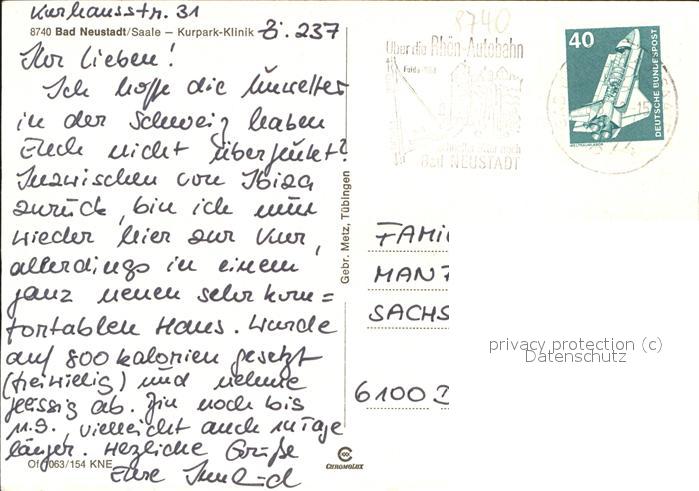 Kurhausstr. 31
8740 Bad Neustadt/Saale – Kurpark-Klinik Zi. 237
Ihr Lieben!
Ich hoffe die Unwetter
in der Schweiz haben
Euch nicht überflutet?
Inzwischen von Ibiza
zurück, bin ich nun
wieder hier zur Kur,
allerdings in einem
ganz neuen sehr kom=
fortablen Haus. Wurde
auf 800 Kalorien gesetzt
(freiwillig) und nehme
fleissig ab. Bin noch bis
11.9., vielleicht auch 14 Tage
länger. Herzliche Grüße
Eure
Of 1063/154 KNE
Gebr. Metz, Tübingen
CHROMOLUX
8740
Über die Rhön-Autobahn
Fulda
schneller
nach
Bad NEUSTADT
40
DEUTSCHE BUNDESPOST
WELTRAUMLABOR
FAMI
MAN
SACHS
6100
privacy protection (c)
Datenschutz